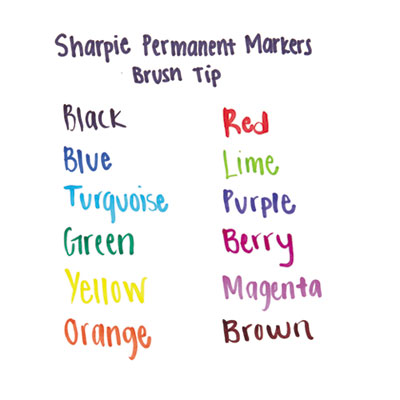 Sharpie Permanent Markers
Brush Tip
Black
Blue
Turquoise
Green
Yellow
Orange
Red
Lime
Purple
Berry
Magenta
Brown